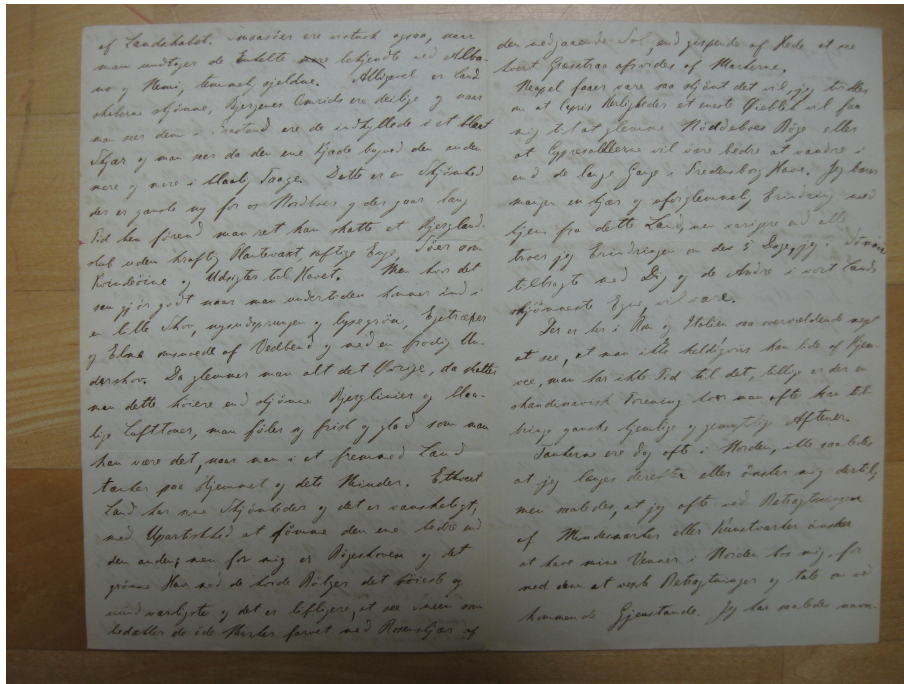 af Landskabet. Indsøer ere vistnok ogsaa, naar
man undtager de Enkelte bekjendte ved Alba-
no og Nemi, temmelig sjeldne. Alligevel er Land
skaberne skjønne, Bjergenes Omrids ere deilige og naar
man seer dem i Frastand ere de indhyllede i et blaat
Skjær og man seer da den ene Kjæde bagved den anden
mere og mere i blaalig Taage. Dette er en Skjønhed
der er ganske ny for os Nordboer og der gaar lang
Tid hen førend man ret kan skatte et Bjergland-
skab uden kraftig Plantevæxt, saftige Enge, Søer som
og Udsigter til Havet. Men hvor det
saa gjør godt naar man undertiden kommer ind i
en lille Skov, nyudsprungen og lysegrøn, Egetræer
og Elme omsnoede af Vedbend og med en frodig Un-
derskov. Da glemmer man alt det Øvrige, da skatter
man dette høiere end skjønne Bjerglinier og blaa-
lige Lufttoner, man føler sig frisk og glad som man
kan være det, naar man i et fremmed Land
tænker paa Hjemmet og dets Minder. Ethvert
Land har sine Skjønheder og det er vanskeligt,
med Upartiskhed at dømme den ene bedre end
den anden; men for mig er Bøgeskoven og det
grønne Hav med de hvide Bølger det høieste og
og det er lifligere, at see Sneen som
bedækker de øde Marker farvet med Rosenskjær af
den nedgaaende Sol, end gispende af Hede at see
hvert Græsstraa afsvides af Markerne.
Neapel faaer være saa skjønt det vil, jeg tvivler
om at Capris Herligheder et eneste Øieblik vil faa
mig til at glemme Nøddeboes Bøge eller
at Cypresalleerne vil være bedre at vandre i
end de lange Gange i Fredensborg Have. Jeg bærer
mangen en kjær og uforglemmelig Erindring med
hjem fra dette Land, men varigere end alle
troer jeg Erindringen om de 5 Dage, jeg i Sommer
tilbragte med Dig og de Andre i vort Lands
skjønneste Egn, vil være.
Der er her i Rom og Italien saa overvældende meget
at see, at man ikke heldigviis kan lide af Hjem-
vee, man har ikke Tid til det, tillige er der en
skandinavisk Forening hvor man ofte kan til-
bringe ganske hyggelige og gemytlige Aftener.
Tankerne ere dog ofte i Norden, ikke saaledes
at jeg længes derefter eller ønsker mig dertil,
men saaledes, at jeg ofte ved Betragtningen
af Mindesmærker eller Kunstværker ønsker
at have mine Venner i Norden hos mig, for
med dem at vexle Betragtninger og tale om ved
kommende Gjenstande. Jeg har saaledes navn-